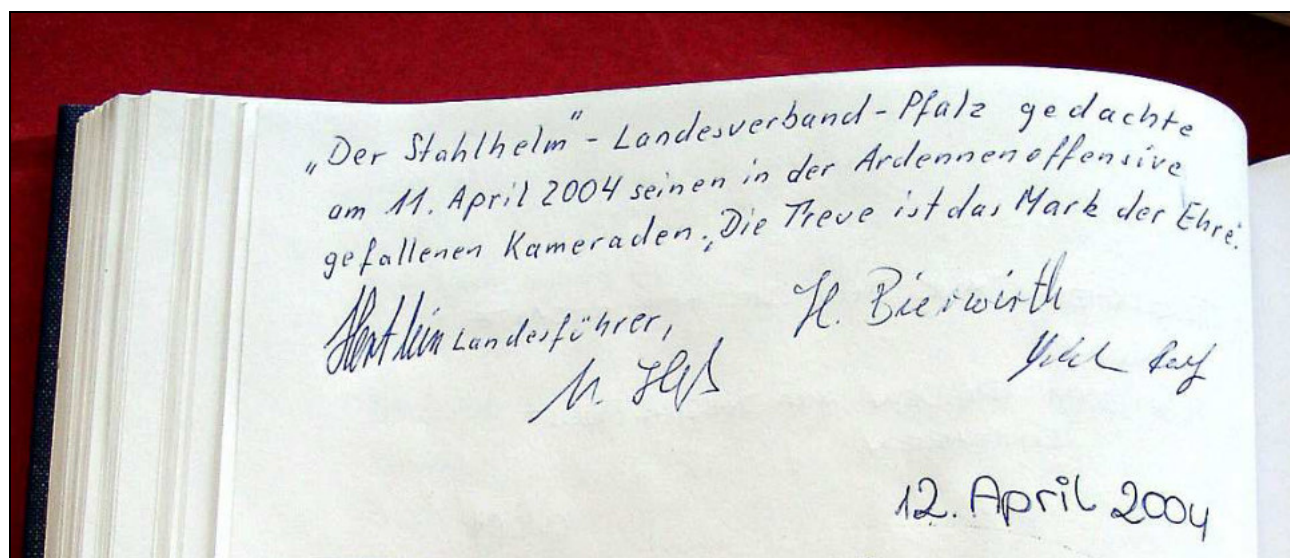 „Der Stahlhelm" - Landesverband - Pfalz gedachte
am 11. April 2004 seinen in der Ardennenoffensive
gefallenen Kameraden. „Die Treue ist das Mark der Ehre".
Landesführer, H. Bierwirth
12. April 2004